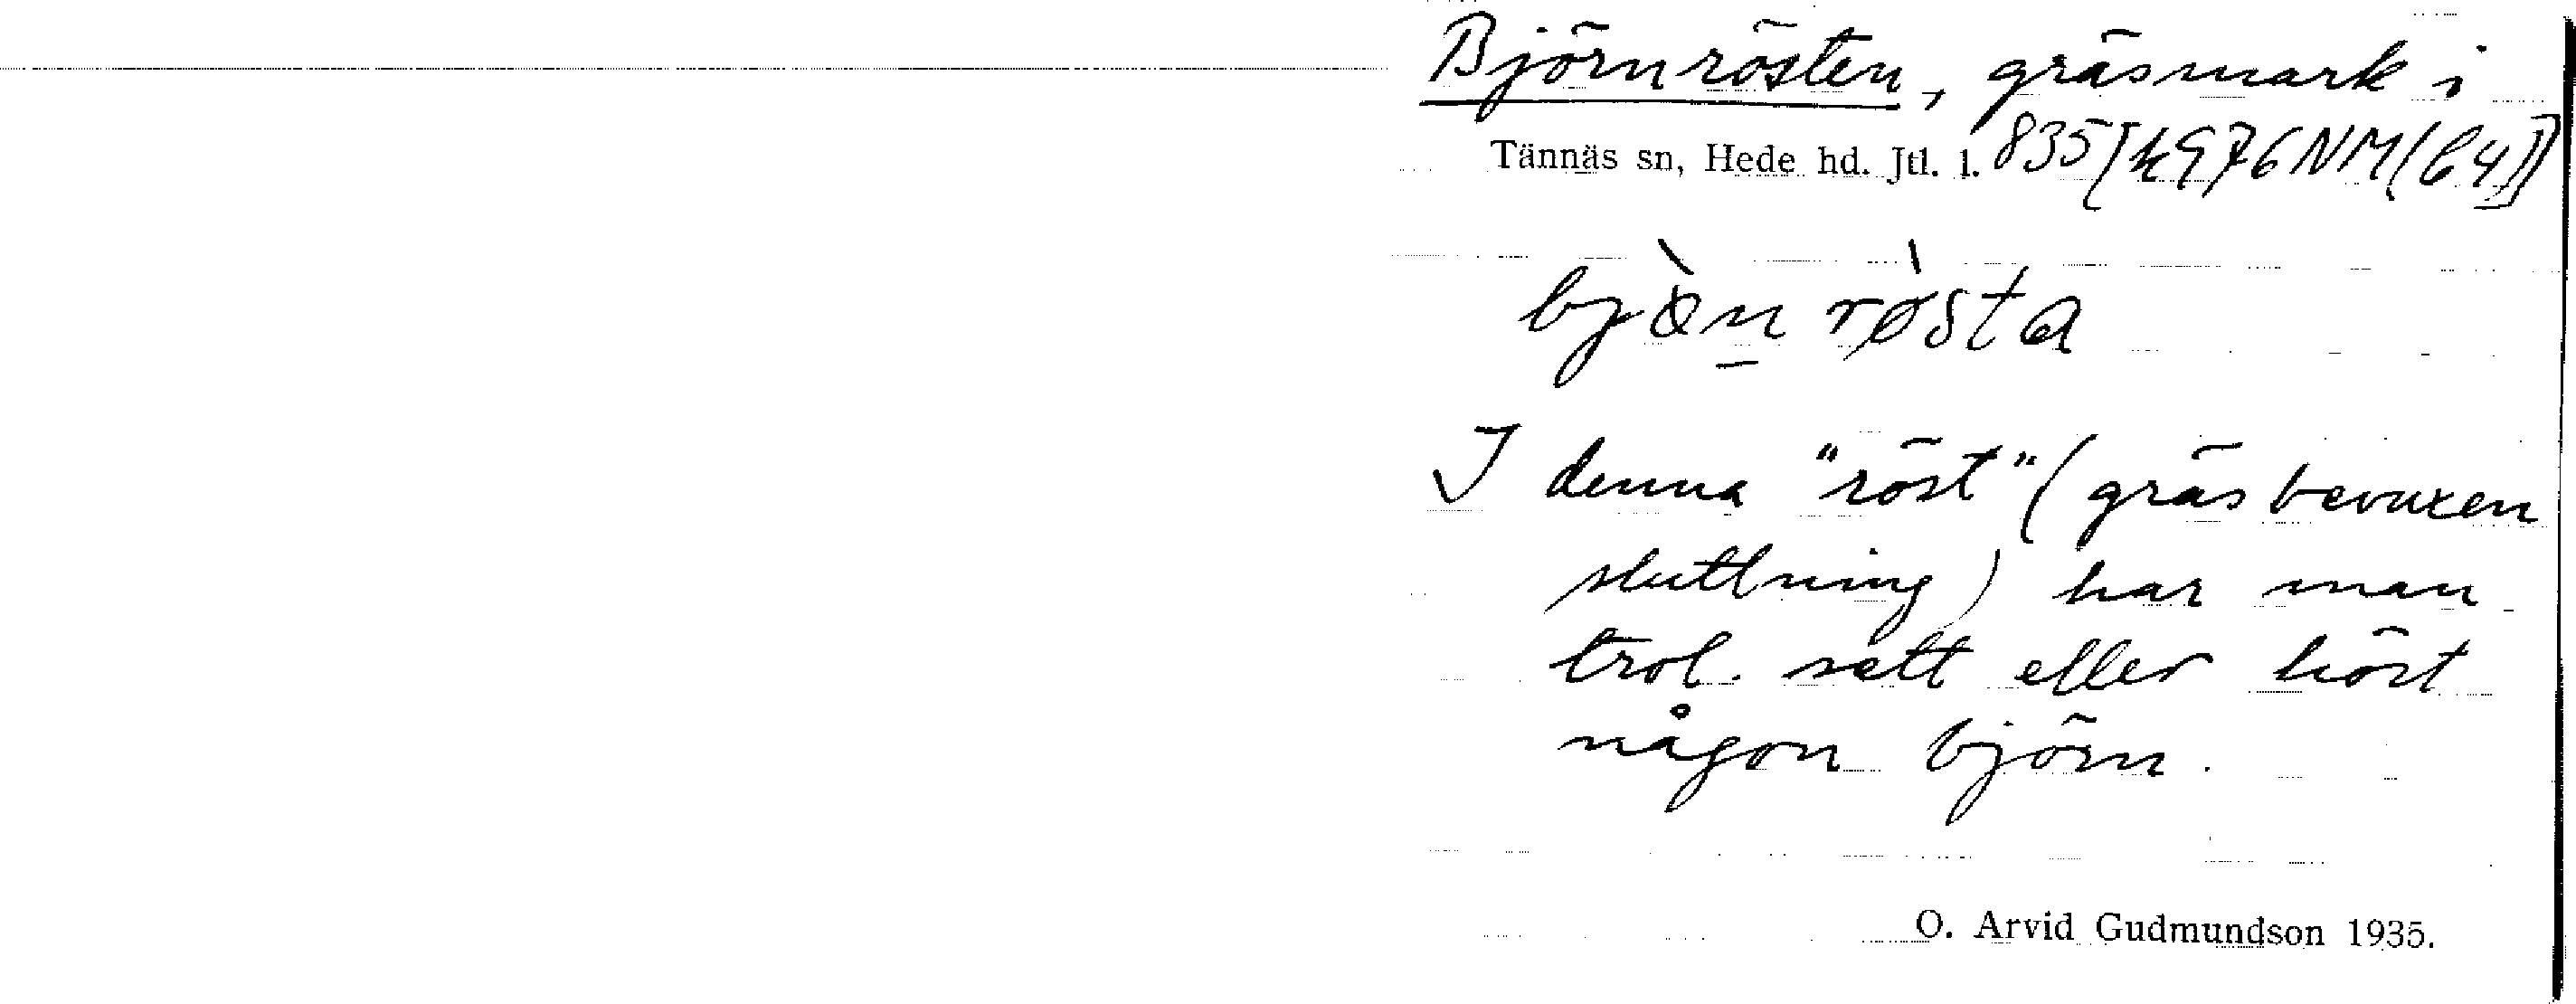 Björnrösten, gräsmark i
Tännäs sn, Hede hd. Jtl. l. 835 [k976NM(64)]
bjø̀n rø̀sta
I denna "röst" (gräsbevuxen
sluttning) har man
trol. sett eller hört
någon björn.
O. Arvid Gudmundson 1935.